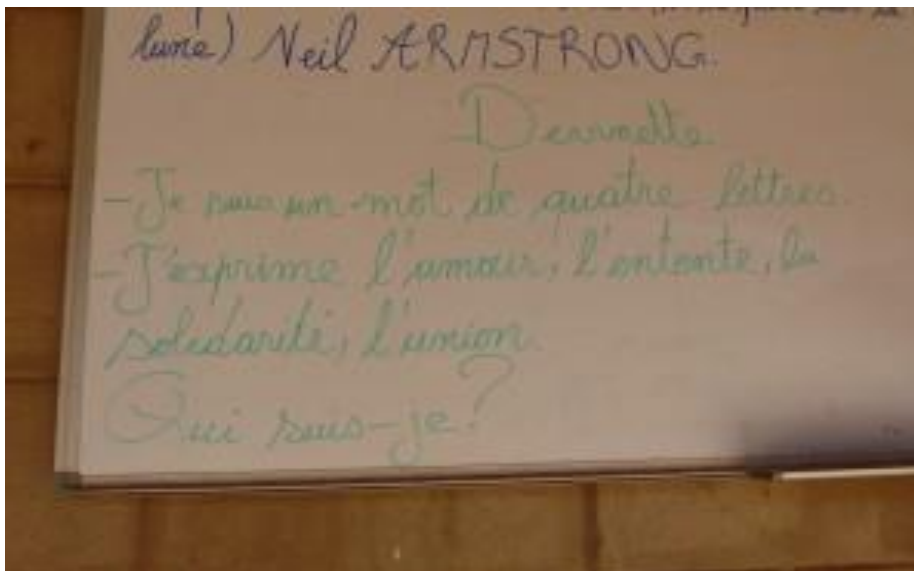 lune) Neil ARMSTRONG.
Devinette
- Je suis un mot de quatre lettres.
- J'exprime l'amour, l'entente, la
solidarité, l'union.
Qui suis-je?